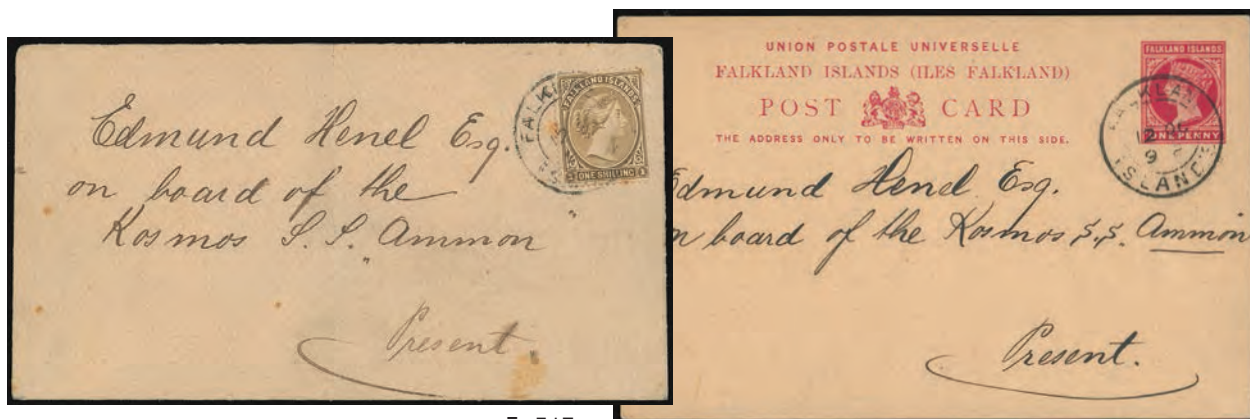 Edmund Henel Esq.
on board of the
Kosmos S. S. "Ammon"
Present.
FALKLAND ISLANDS
ONE SHILLING
UNION POSTALE UNIVERSELLE
FALKLAND ISLANDS (ILES FALKLAND)
POST CARD
THE ADDRESS ONLY TO BE WRITTEN ON THIS SIDE.
FALKLAND ISLANDS
ONE PENNY
Edmund Henel Esq.
on board of the Kosmos S.S. Ammon
Present.